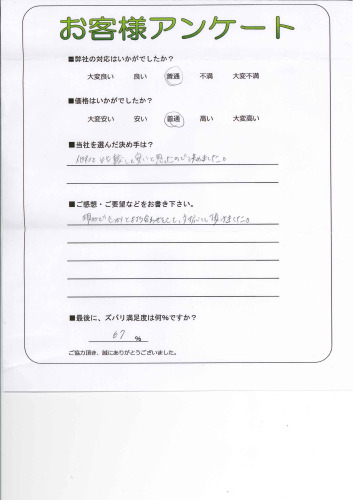 お客様アンケート
■弊社の対応はいかがでしたか?
大変良い 良い 普通 不満 大変不満
■価格はいかがでしたか?
大変安い 安い 普通 高い 大変高い
■当社を選んだ決め手は?
他社と比較して安いと思ったので決めました。
■ご感想・ご要望などをお書き下さい。
■最後に、ズバリ満足度は何%ですか?
67 %
ご協力頂き、誠にありがとうございました。